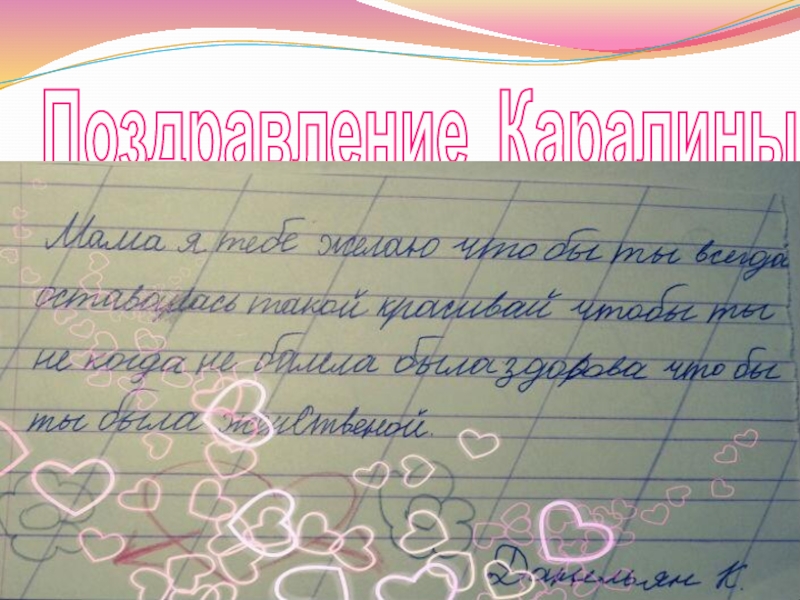 Поздравление Каралины
Мама я тебе желаю что бы ты всегда
оставалась такой красивай чтобы ты
не когда не балела была здорова что бы
ты была женственой.
Данельян К.